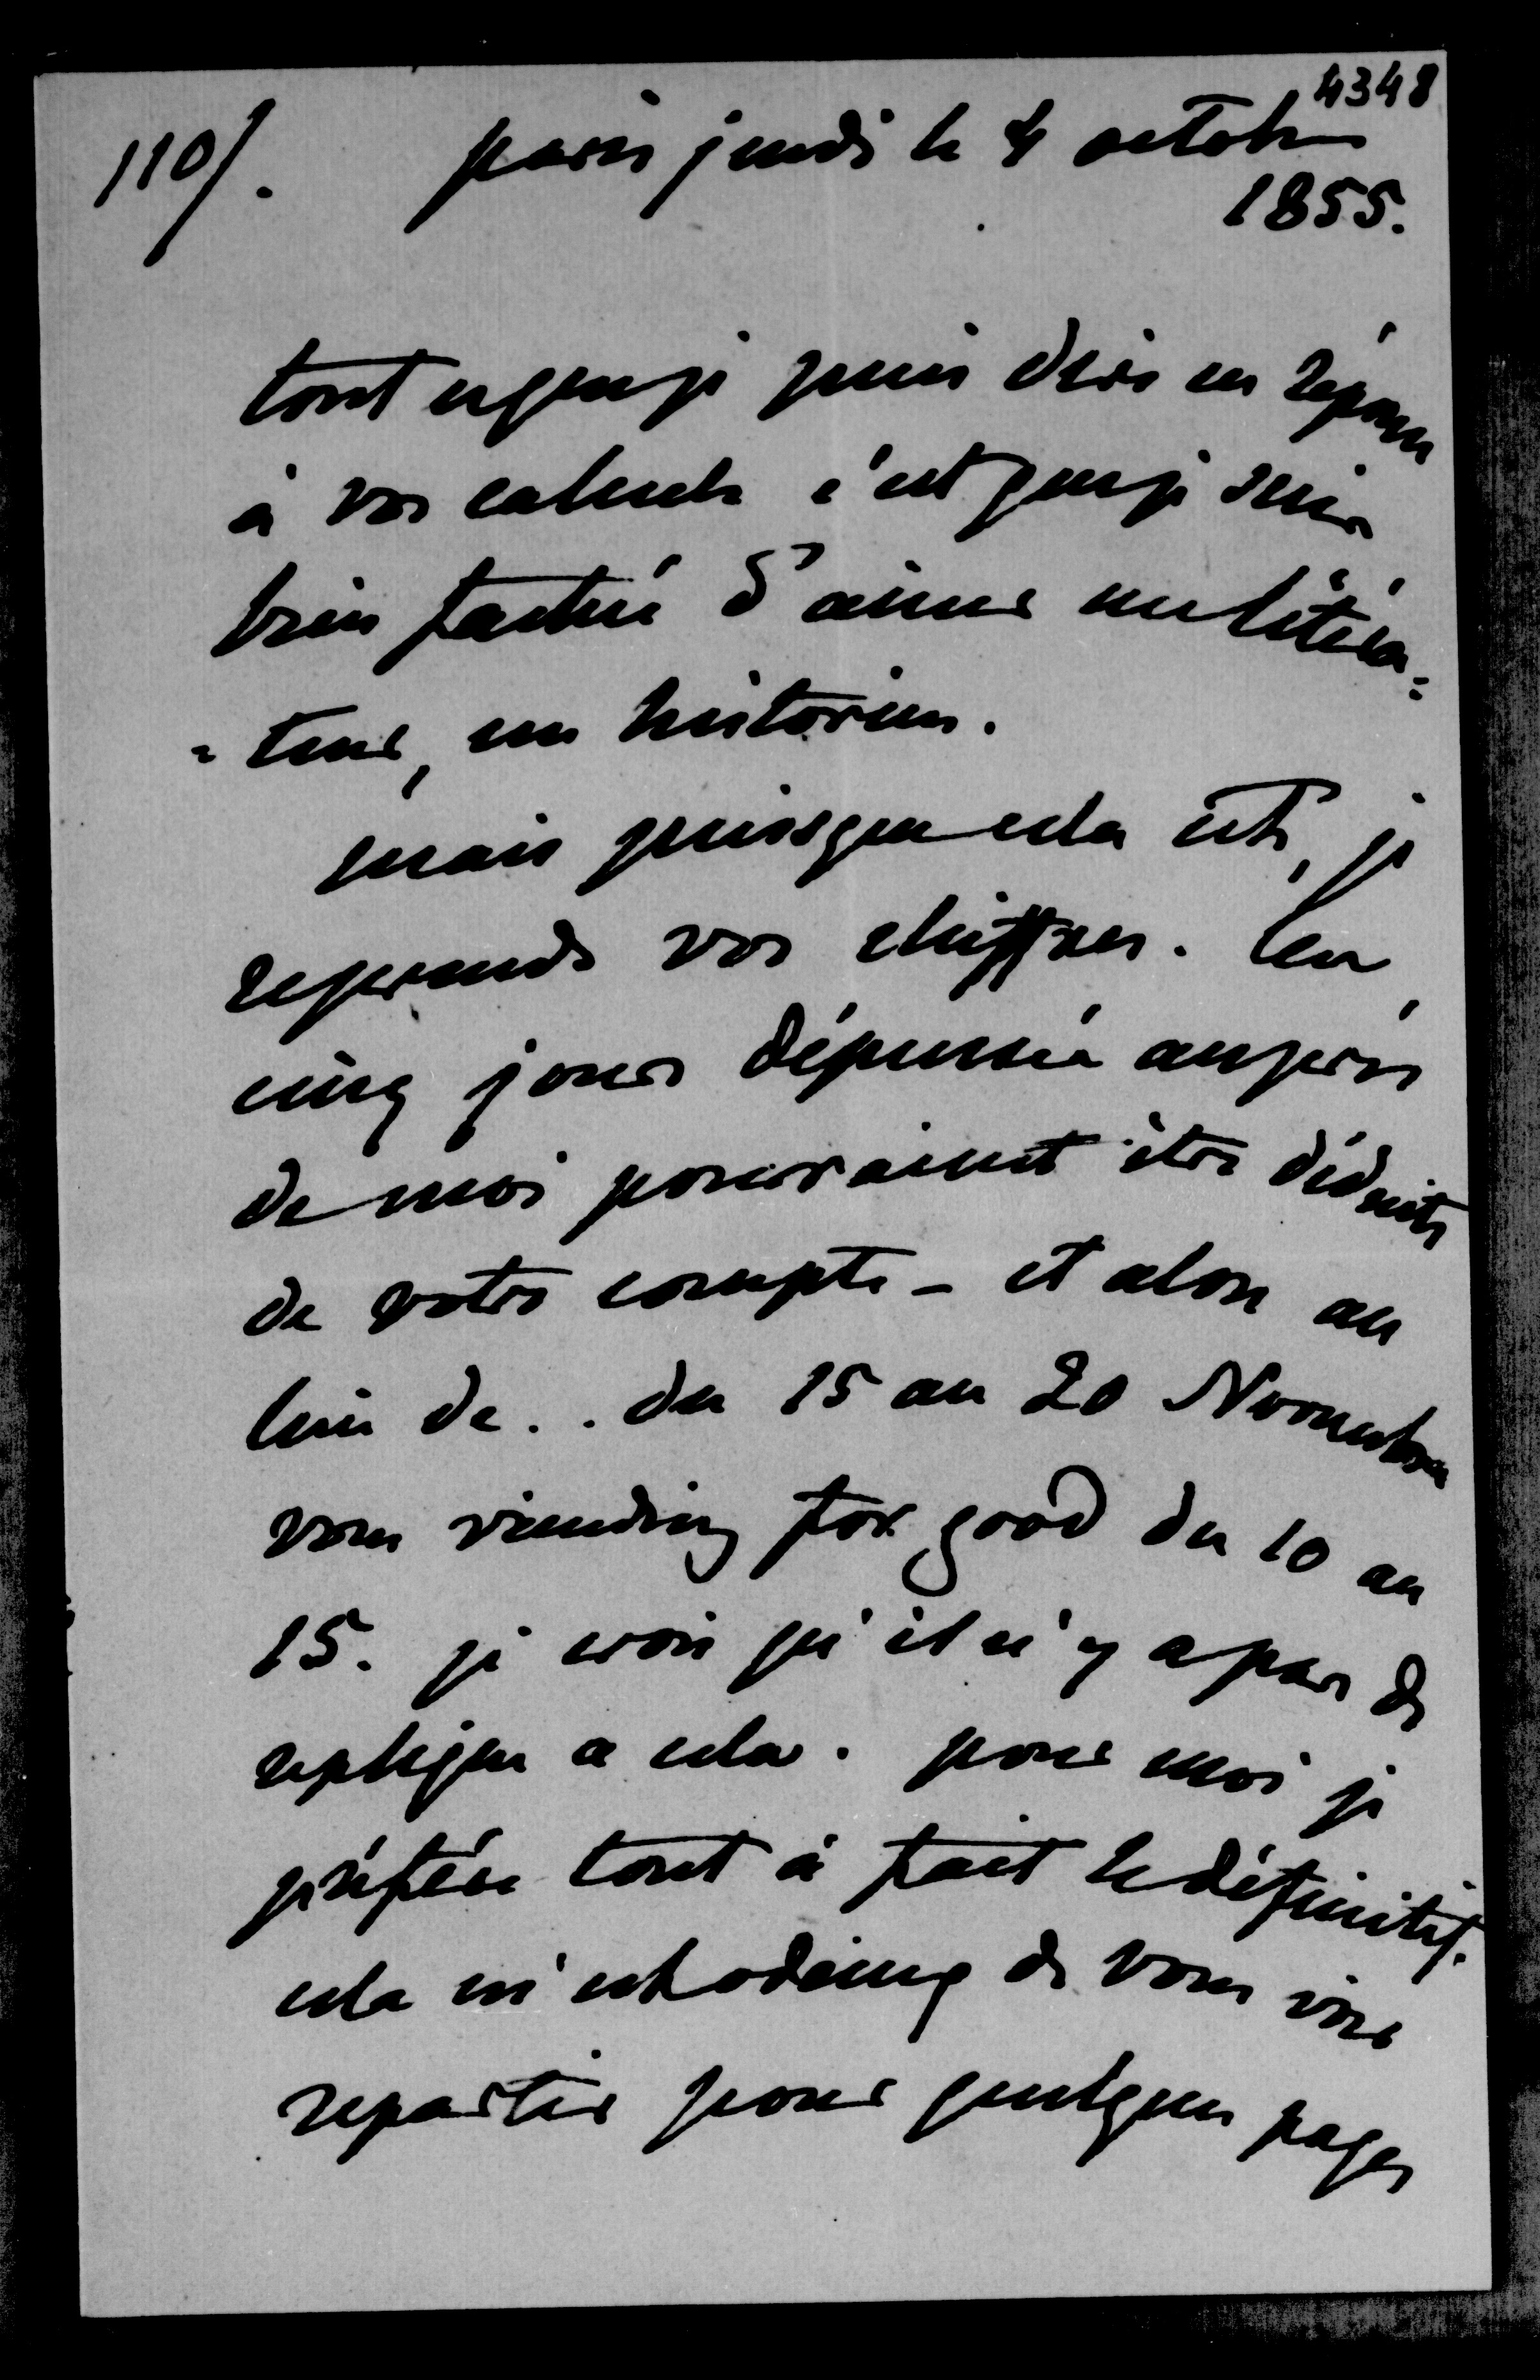 4348
110/. paris jeudi le 4 octobre
1855.
tout ce que je puis dire en réponse
à vos calculs c'est que je suis
bien fachée d'aimer un littéra=
=teur, un historien.
mais puisque cela est, je
reprends vos chiffres. les
cinq jours dépensés auprès
de moi pourraient être déduits
de votre compte - et alors au
lieu de .. du 15 au 20 Novembre
vous viendriez for good du 10 au
15. je crois qu'il n'y a pas de
replique a cela. pour moi je
préfère tout à fait le définitif.
cela m'est odieux de vous voir
repartir pour quelques pages